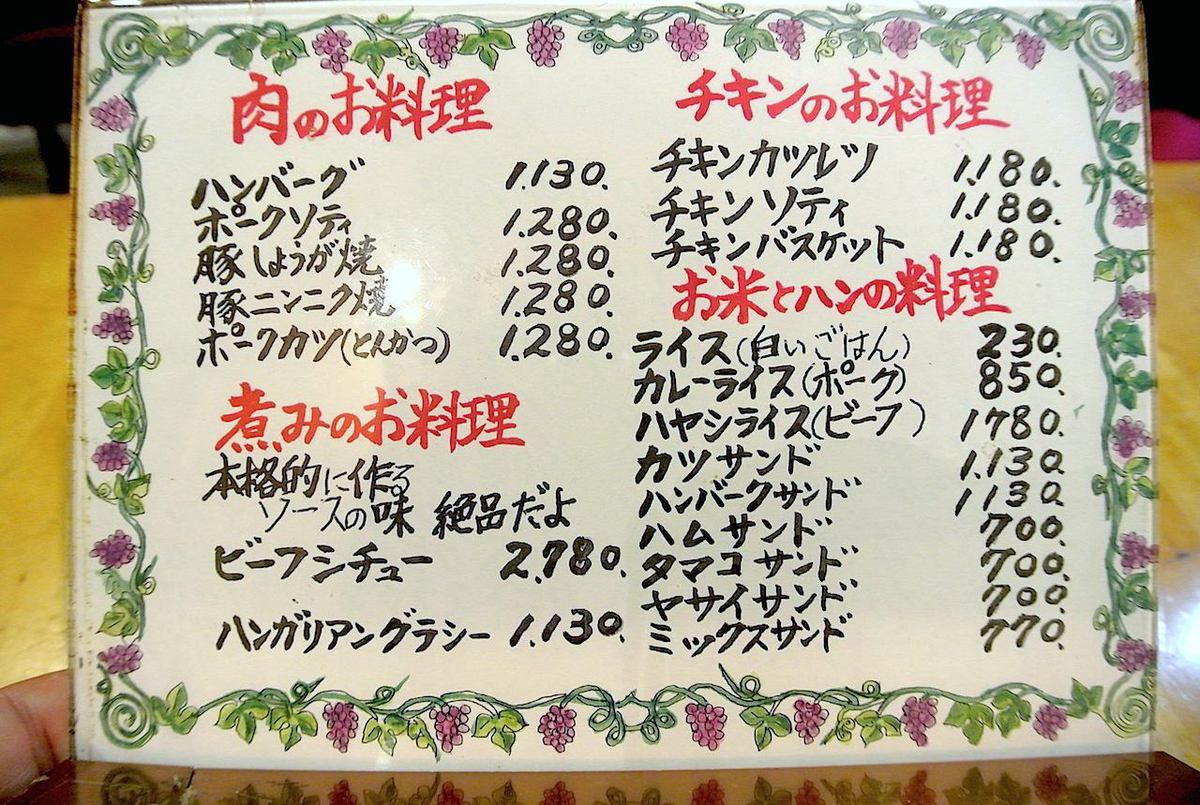 肉のお料理
ハンバーグ 1.130.
ポークソティ 1.280.
豚しょうが焼 1.280.
豚ニンニク焼 1.280.
ポークカツ(とんかつ) 1.280.
煮みのお料理
本格的に作る
ソースの味 絶品だよ
ビーフシチュー 2.780.
ハンガリアングラシー 1.130.
チキンのお料理
チキンカツレツ 1.180.
チキンソティ 1.180.
チキンバスケット 1.180.
お米とハンの料理
ライス(白いごはん) 230.
カレーライス(ポーク) 850.
ハヤシライス(ビーフ) 1780.
カツサンド 1.130.
ハンバークサンド 1130.
ハムサンド 700.
タマコサンド 700.
ヤサイサンド 700.
ミックスサンド 770.